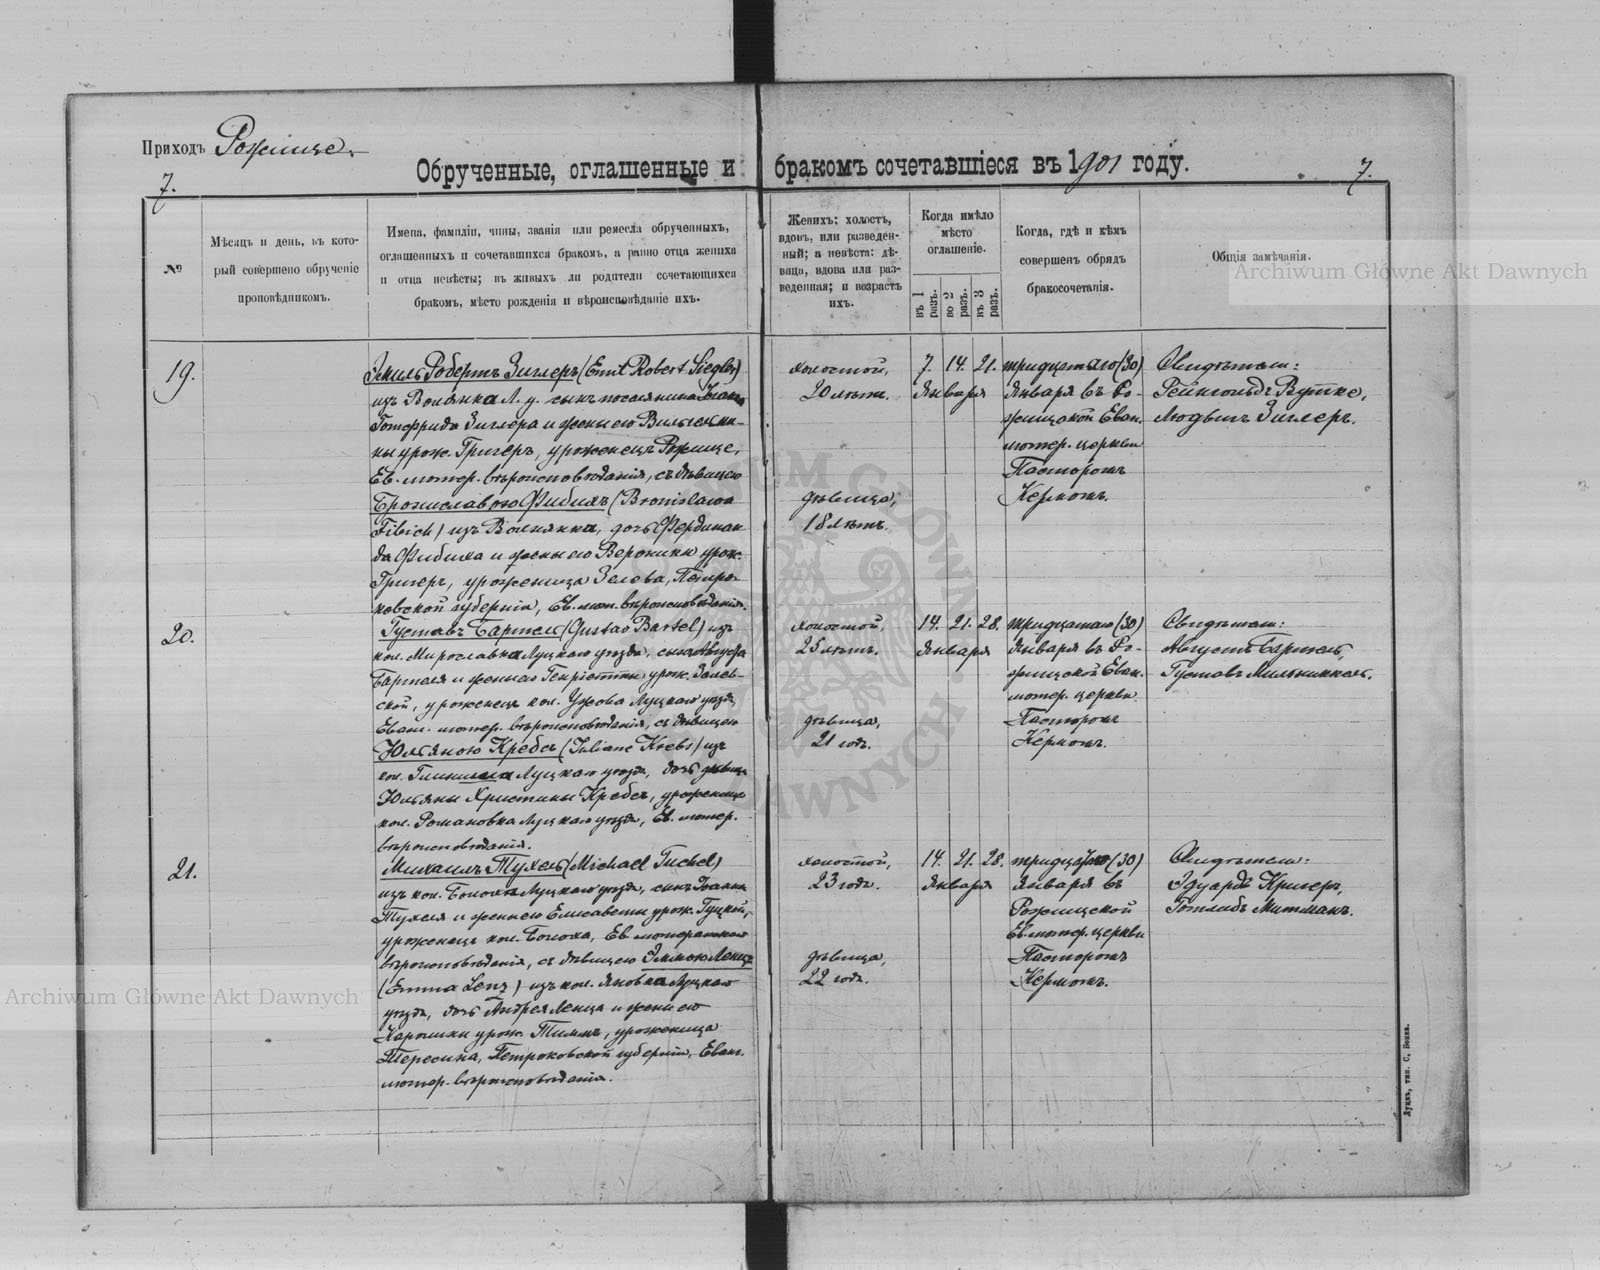 Приходъ Рожище.
Обрученные, оглашенные и бракомъ сочетавшіеся въ 1901 году.
7.
7.
№
Мѣсяцъ и день, въ кото-
рый совершено обрученіе
проповѣдникомъ.
Имена, фамиліи, чины, званія или ремесла обрученныхъ,
оглашенныхъ и сочетавшихся бракомъ, а равно отца жениха
и отца невѣсты; въ живыхъ ли родители сочетающихся
бракомъ, мѣсто рожденія и вѣроисповѣданіе ихъ.
Женихъ: холостъ,
вдовъ, или разведен-
ный; а невѣста: дѣ-
вица, вдова или раз-
веденная; и возрастъ
ихъ.
Когда имѣло
мѣсто
оглашеніе.
въ 1 разъ.
во 2 разъ.
въ 3 разъ.
Когда, гдѣ и кѣмъ
совершенъ обрядъ
бракосочетанія.
Общія замѣчанія.
19.
Эмиль Робертъ Зиглеръ (Emil Robert Siegler)
изъ Волянка Л. у. сынъ поселянина Іоанна
Готфрида Зиглера и жены его Вильгельми-
ны урож. Григеръ, уроженецъ Рожище,
Ев. лютер. вѣроисповѣданія, съ дѣвицею
Брониславою Фибихъ (Bronislawa
Fibich) изъ Волянка, дочь Фердинан-
да Фибиха и жены его Вероники урож.
Григеръ, уроженица Зелева, Петро-
ковской губерніи, Ев. лют. вѣроисповѣданія.
холостой,
20 лѣтъ.
дѣвица,
18 лѣтъ.
7. 14. 21.
Января
тридцатаго (30)
Января въ Ро-
жищской Еван.
лютер. церкви
Пасторомъ
Кермомъ.
Свидѣтели:
Рейнгольдъ Рутке,
Людвигъ Зиглеръ.
20.
Густавъ Бартель (Gustav Bartel) изъ
кол. Мирославка Луцкаго уѣзда, сынъ Августа
Бартеля и жены его Генріетты урож. Залев-
ской, уроженецъ кол. Ужова Луцкаго уѣзда,
Еван. лютер. вѣроисповѣданія, съ дѣвицею
Юльяною Кребсъ (Juliane Krebs) изъ
кол. Глинища Луцкаго уѣзда, дочь дѣвицы
Юльяны Христины Кребсъ, уроженица
кол. Романовка Луцкаго уѣзда, Ев. лютер.
вѣроисповѣданія.
холостой,
25 лѣтъ.
дѣвица,
21 годъ.
14. 21. 28.
Января
тридцатаго (30)
Января въ Ро-
жищской Еван.
лютер. церкви
Пасторомъ
Кермомъ.
Свидѣтели:
Августъ Бартель,
Густавъ Мильникель.
21.
Михаилъ Тухель (Michael Tuchel)
изъ кол. Болоха Луцкаго уѣзда, сынъ Іоанна
Тухеля и жены его Елисаветы урож. Гуцкой,
уроженецъ кол. Болоха, Ев. лютеранскаго
вѣроисповѣданія, съ дѣвицею Эммою Ленцъ
(Emma Lenz) изъ кол. Яновка Луцкаго
уѣзда, дочь Андрея Ленца и жены его
Каролины урож. Тиммъ, уроженица
Тересина, Петроковской губерніи, Еван.
лютер. вѣроисповѣданія.
холостой,
23 года.
дѣвица,
22 года.
14. 21. 28.
Января
тридцатаго (30)
Января въ
Рожищской
Ев. лютер. церкви
Пасторомъ
Кермомъ.
Свидѣтели:
Эдуардъ Кригеръ,
Готлибъ Митманъ.
Луцкъ, тип. С. Бонка.
Archiwum Główne Akt Dawnych
Archiwum Główne Akt Dawnych